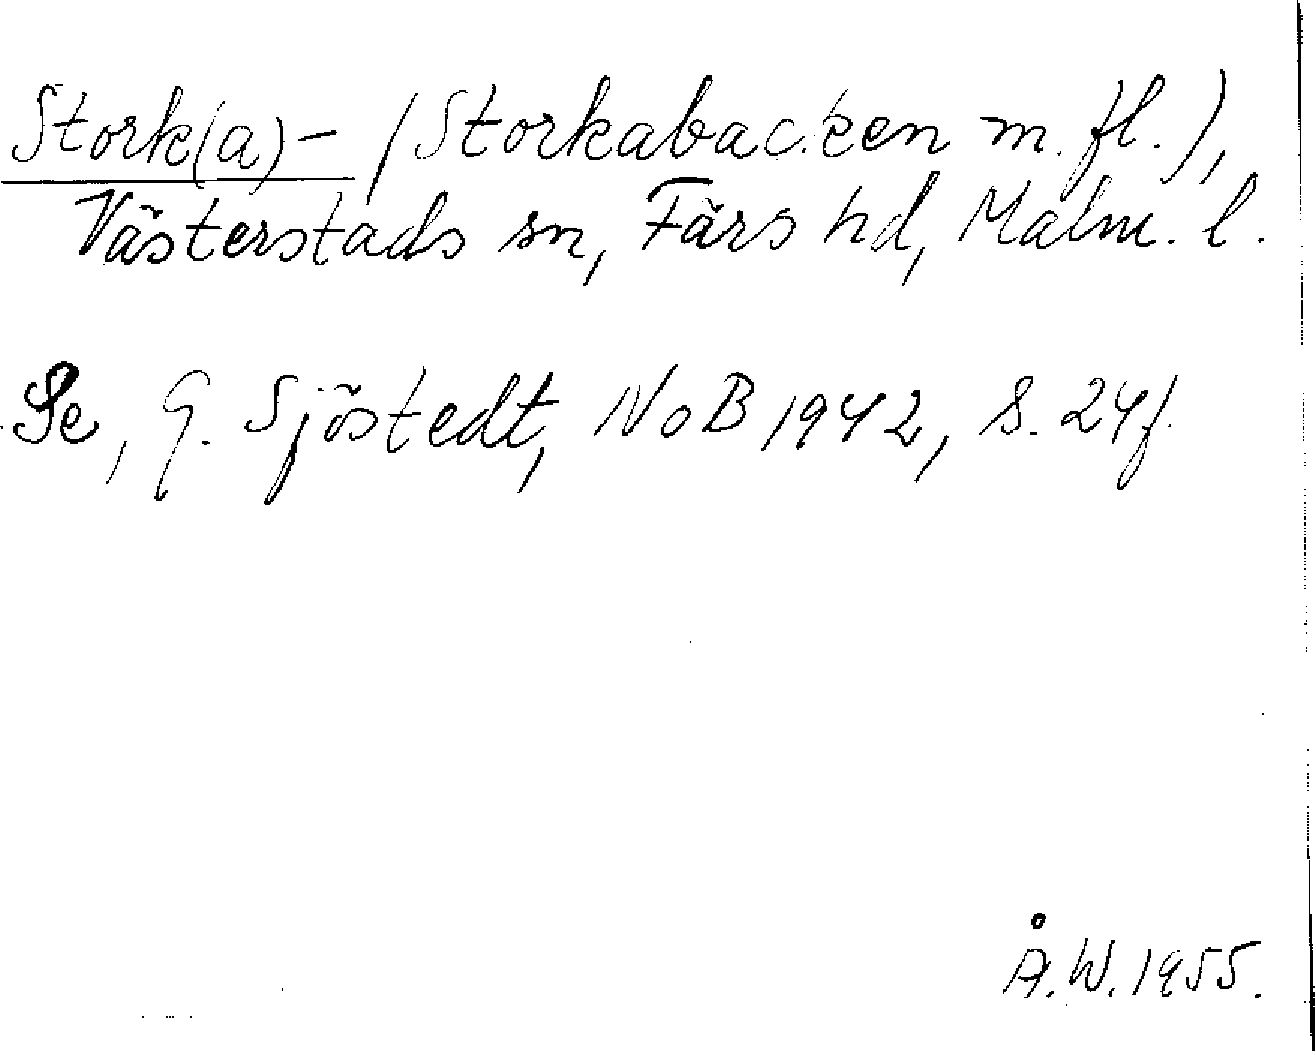 Stork(a)- (Storkabacken m. fl.),
Västerstads sn, Färs hd, Malm. l.
Se, G. Sjöstedt, NoB 1942, s. 24f.
Å.W. 1955.